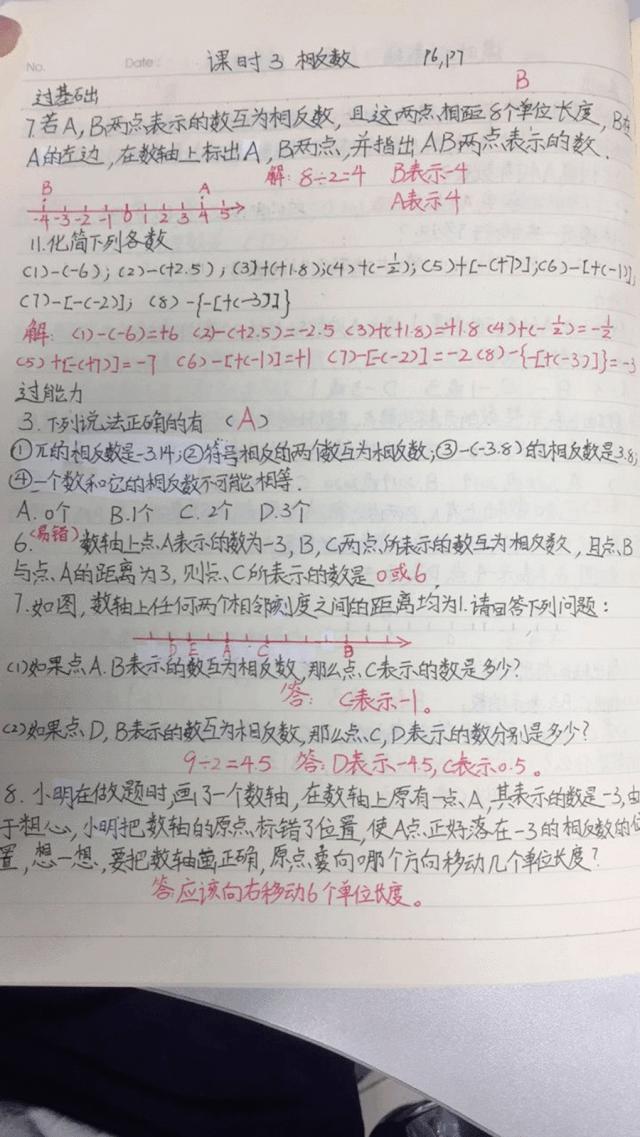 No.
Date:
课时3 相反数 P6,P7
过基础 B
7.若A,B两点表示的数互为相反数,且这两点相距8个单位长度,B在
A的左边,在数轴上标出A,B两点,并指出AB两点表示的数.
解:8÷2=4 B表示-4
A表示4
B A
-4 -3 -2 -1 0 1 2 3 4 5
11.化简下列各数
(1)-(-6);(2)-(+2.5);(3)+(+1.8);(4)+(-1/2);(5)+[-(+7)];(6)-[+(-1)];
(7)-[-(-2)]; (8)-{-[+(-3)]}
解:(1)-(-6)=+6 (2)-(+2.5)=-2.5 (3)+(+1.8)=+1.8 (4)+(-1/2)=-1/2
(5)+[-(+7)]=-7 (6)-[+(-1)]=+1 (7)-[-(-2)]=-2 (8)-{-[+(-3)]}=-3
过能力
3.下列说法正确的有 (A)
①π的相反数是-3.14;②符号相反的两个数互为相反数;③-(-3.8)的相反数是3.8;
④一个数和它的相反数不可能相等.
A.0个 B.1个 C.2个 D.3个
6.(易错)数轴上点A表示的数为-3,B,C两点所表示的数互为相反数,且点B
与点A的距离为3,则点C所表示的数是0或6.
7.如图,数轴上任何两个相邻刻度之间的距离均为1.请回答下列问题:
D E A C B
(1)如果点A.B表示的数互为相反数,那么点C表示的数是多少?
答: C表示-1。
(2)如果点D,B表示的数互为相反数,那么点C,D表示的数分别是多少?
9÷2=4.5 答:D表示-4.5,C表示0.5。
8.小明在做题时,画了一个数轴,在数轴上原有一点A,其表示的数是-3,由
于粗心,小明把数轴的原点标错了位置,使A点正好落在-3的相反数的位
置,想一想,要把数轴画正确,原点要向哪个方向移动几个单位长度?
答:应该向右移动6个单位长度。